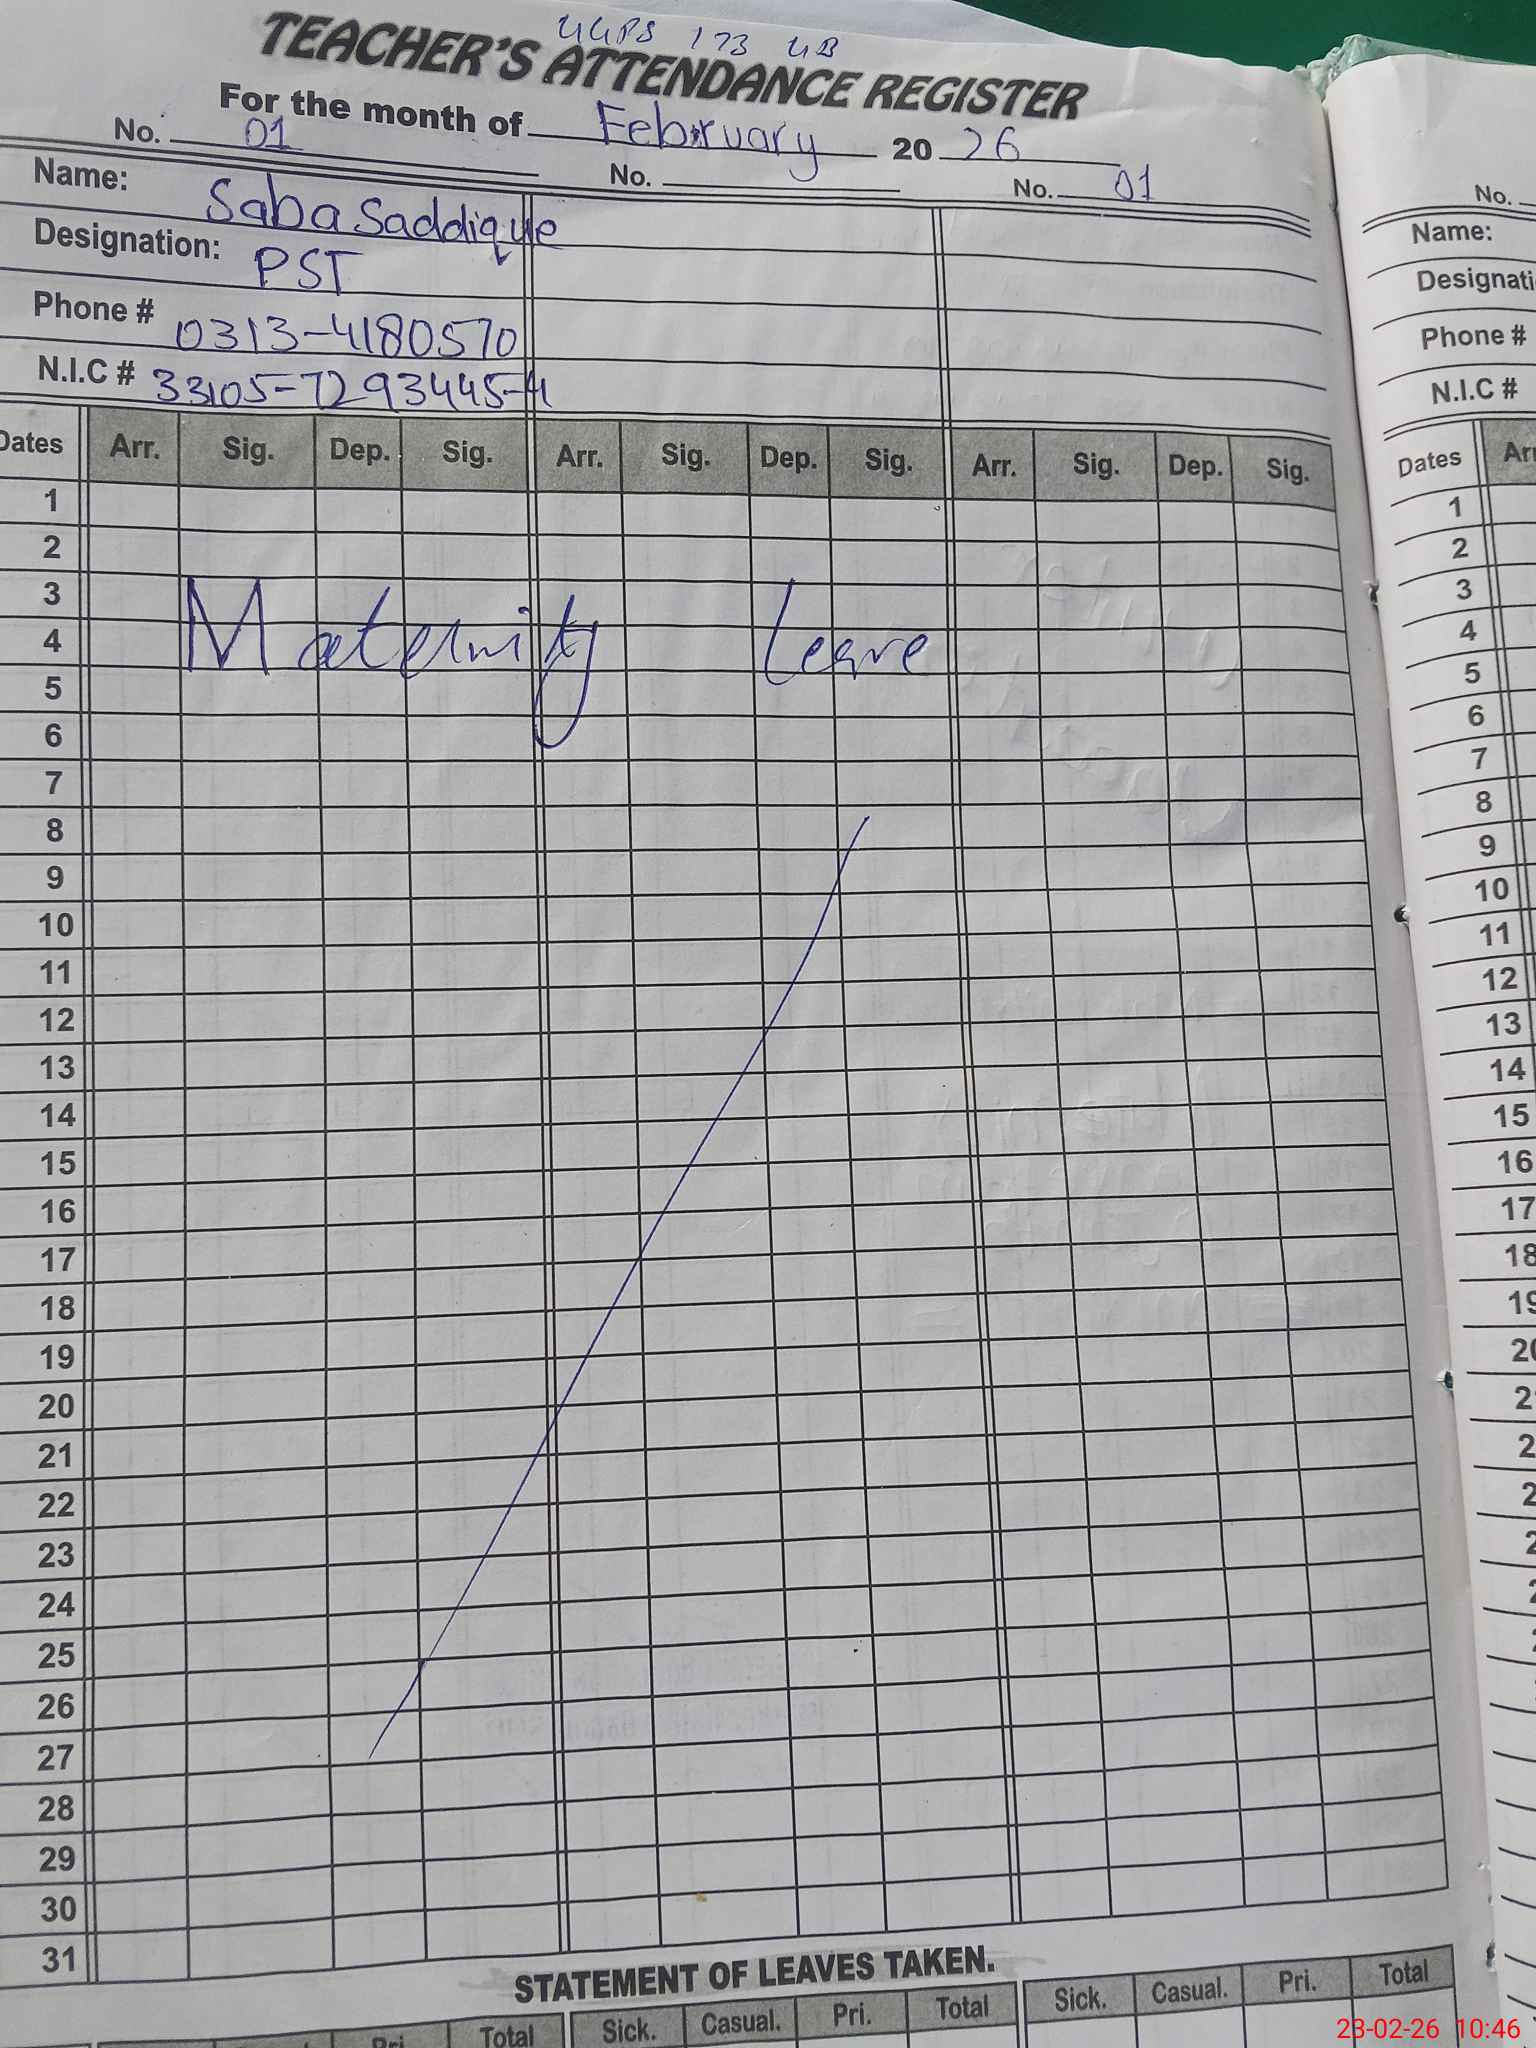 GGPS 173 GB
TEACHER'S ATTENDANCE REGISTER
For the month of February 2026
No. 01 No. No. 01
Name: Saba Saddique
Designation: PST
Phone # 0313-4180570
N.I.C # 33105-7293445-4
Dates Arr. Sig. Dep. Sig. Arr. Sig. Dep. Sig. Arr. Sig. Dep. Sig.
1
2
3
4 Maternity Leave
5
6
7
8
9
10
11
12
13
14
15
16
17
18
19
20
21
22
23
24
25
26
27
28
29
30
31
STATEMENT OF LEAVES TAKEN.
Pri. Total Sick. Casual. Pri. Total Sick. Casual. Pri. Total
No.
Name:
Designati
Phone #
N.I.C #
Dates Arr
1
2
3
4
5
6
7
8
9
10
11
12
13
14
15
16
17
18
19
20
23-02-26 10:46